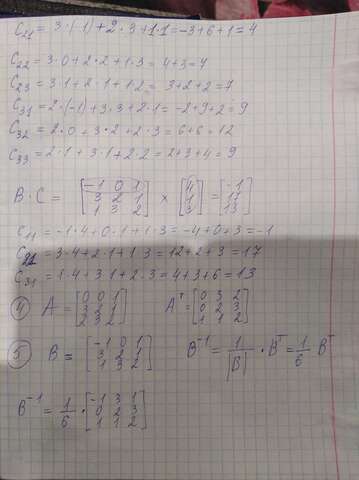 C₂₁ = 3·(-1)+2·3+1·1=-3+6+1=4
C₂₂ = 3·0+2·2+1·3 = 4+3=7
C₂₃ = 3·1+2·1+1·2 = 3+2+2=7
C₃₁ = 2·(-1)+3·3+2·1= -2+9+2=9
C₃₂ = 2·0+3·2+2·3=6+6=12
C₃₃ = 2·1+3·1+2·2=2+3+4=9
B·C = [-1 0 1; 3 2 1; 1 3 2] × [4; 1; 3] = [-1; 17; 13]
C₁₁ = -1·4+0·1+1·3=-4+0+3=-1
C₂₁ = 3·4+2·1+1·3=12+2+3=17
C₃₁=1·4+3·1+2·3=4+3+6=13
④ A = [0 0 1; 3 2 1; 2 3 2] Aᵀ = [0 3 2; 0 2 3; 1 1 2]
⑤ B = [-1 0 1; 3 2 1; 1 3 2] B⁻¹ = 1/|B| · Bᵀ = 1/6 Bᵀ
B⁻¹ = 1/6 · [-1 3 1; 0 2 3; 1 1 2]